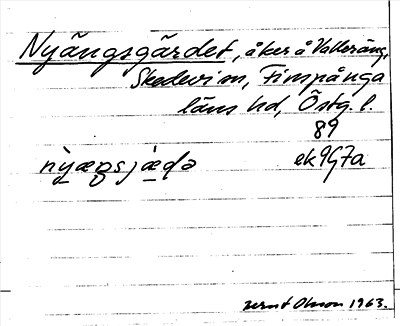 Nyängsgärdet, åker å Valleräng,
Skedevi sn, Finspånga
läns hd, Östg. l.
89
ek 9G7a
Bernt Olsson 1963.